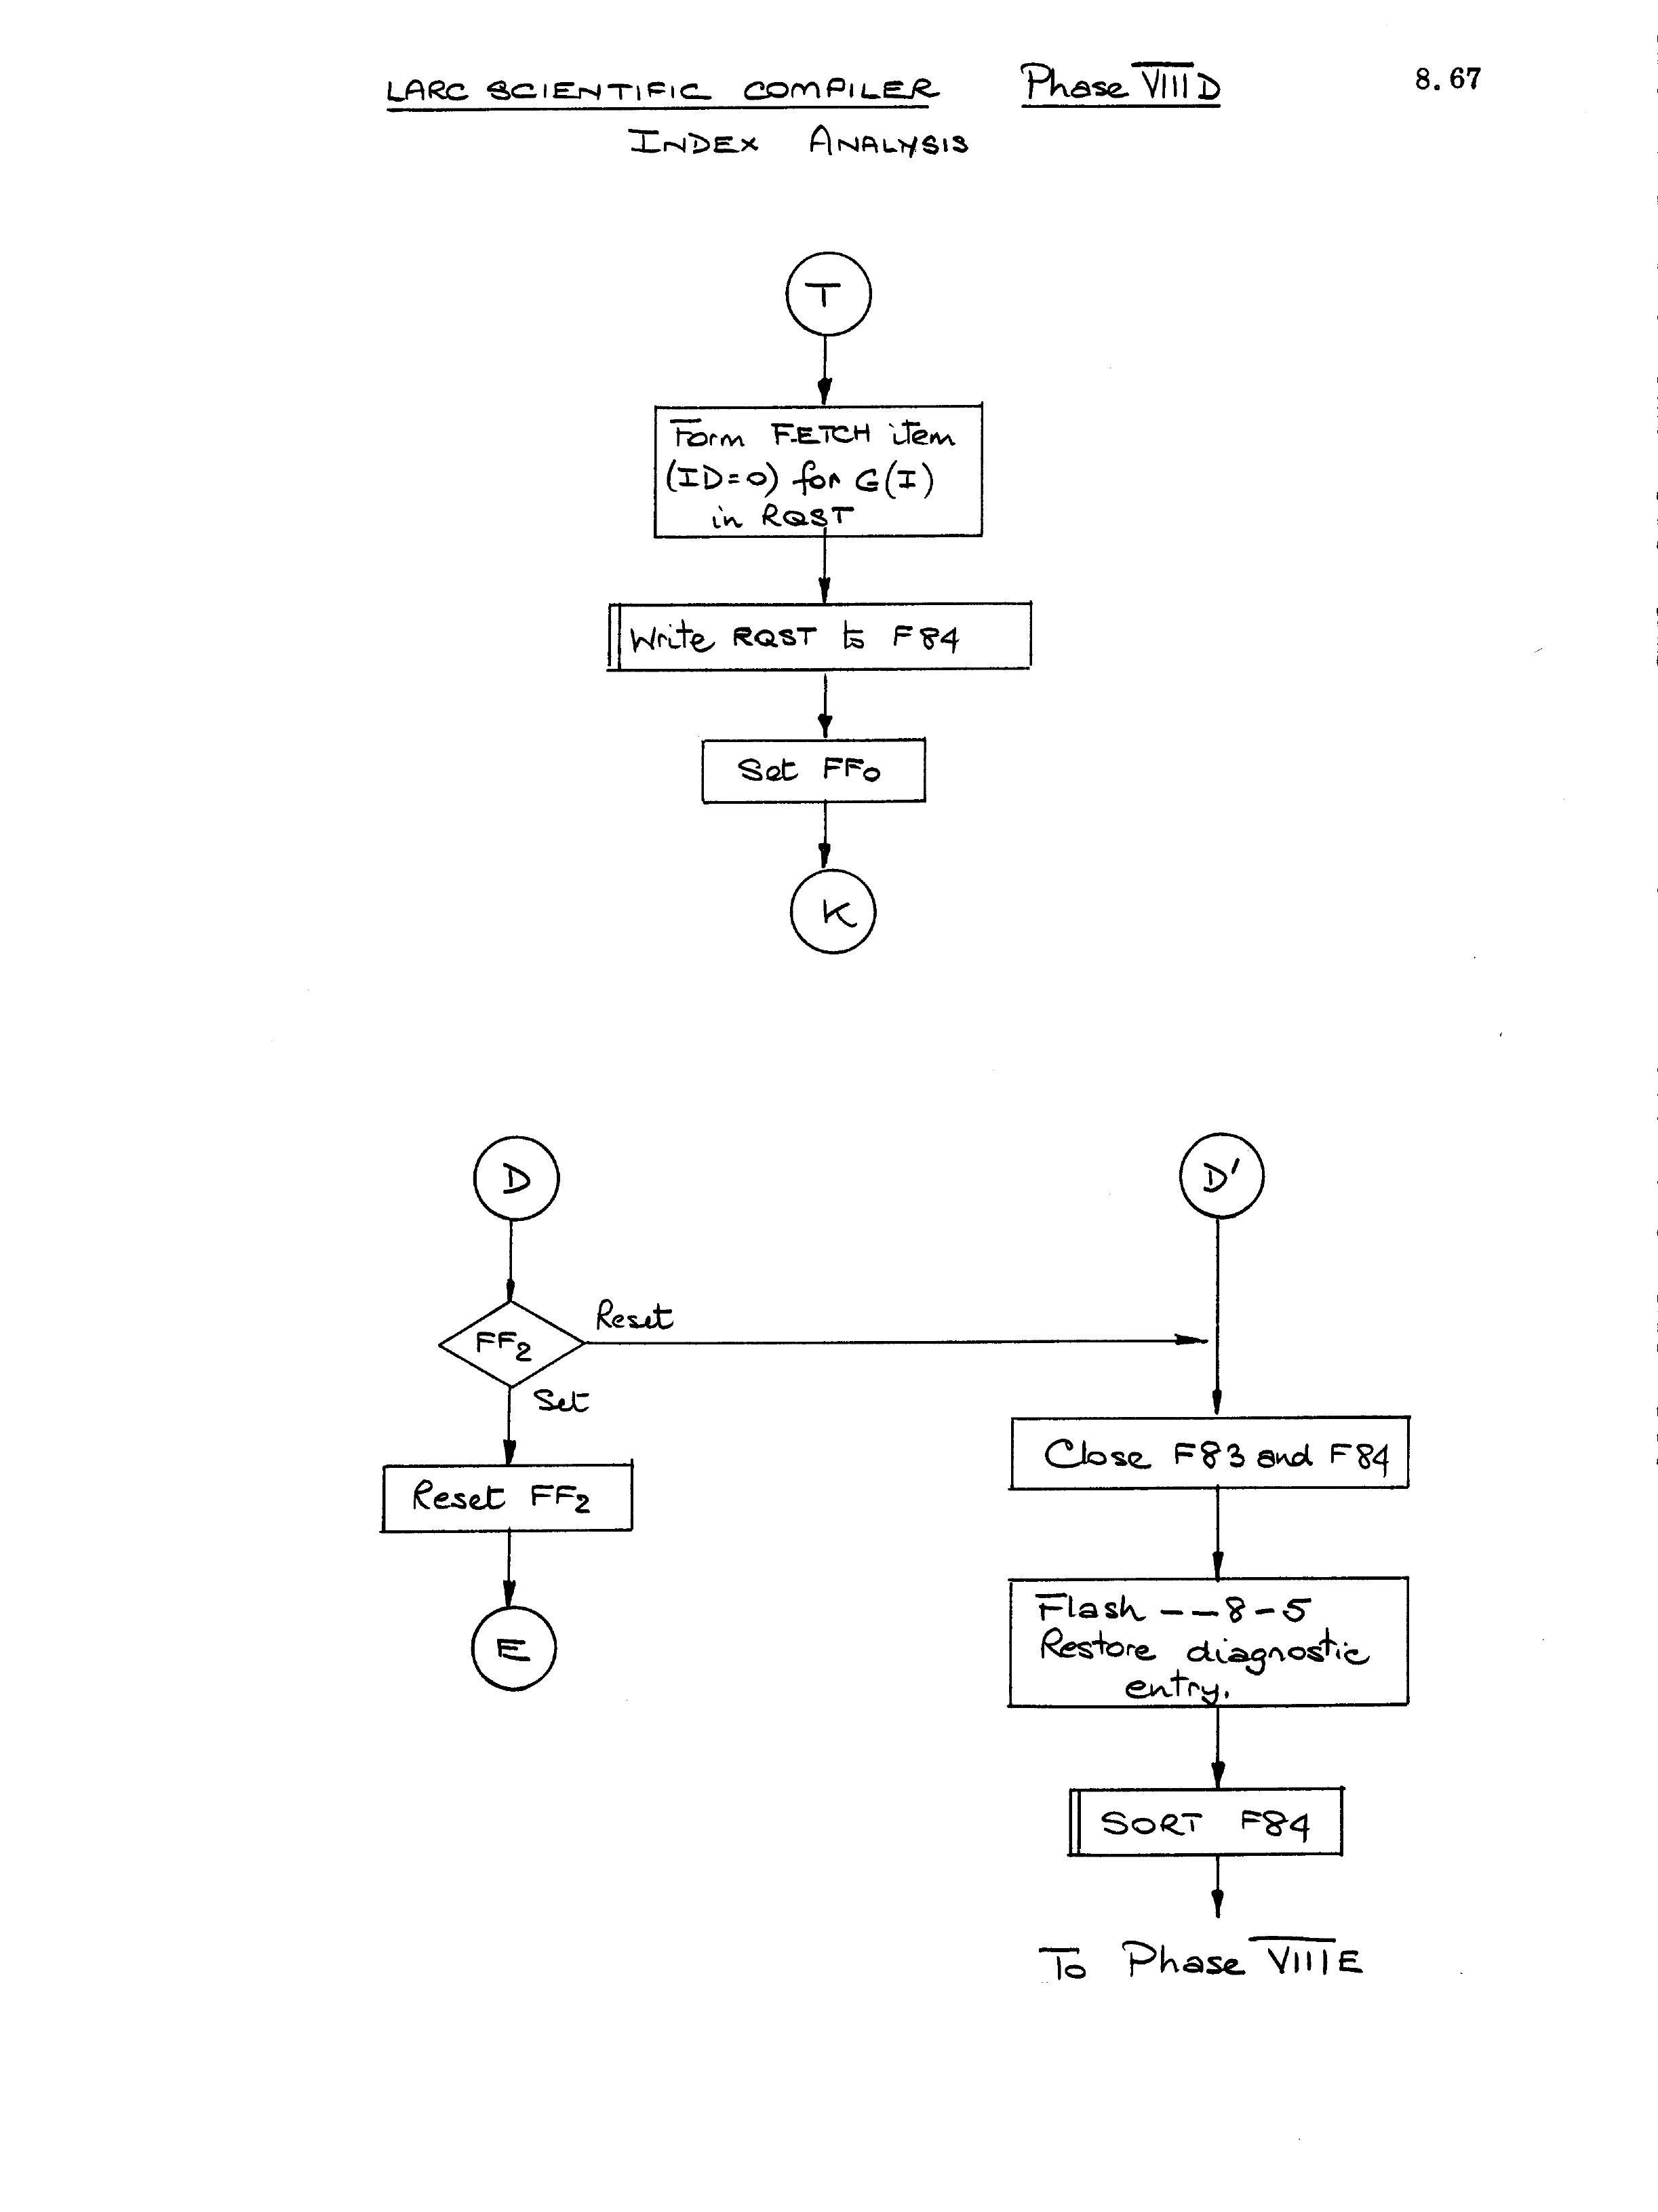 LARC SCIENTIFIC COMPILER Phase VIII D 8.67
INDEX ANALYSIS
T
Form FETCH item
(ID=0) for G(I)
in RQST
Write RQST to F84
Set FF0
K
D
D'
FF2
Reset
Set
Reset FF2
E
Close F83 and F84
Flash -- 8-5
Restore diagnostic
entry.
SORT F84
To Phase VIII E